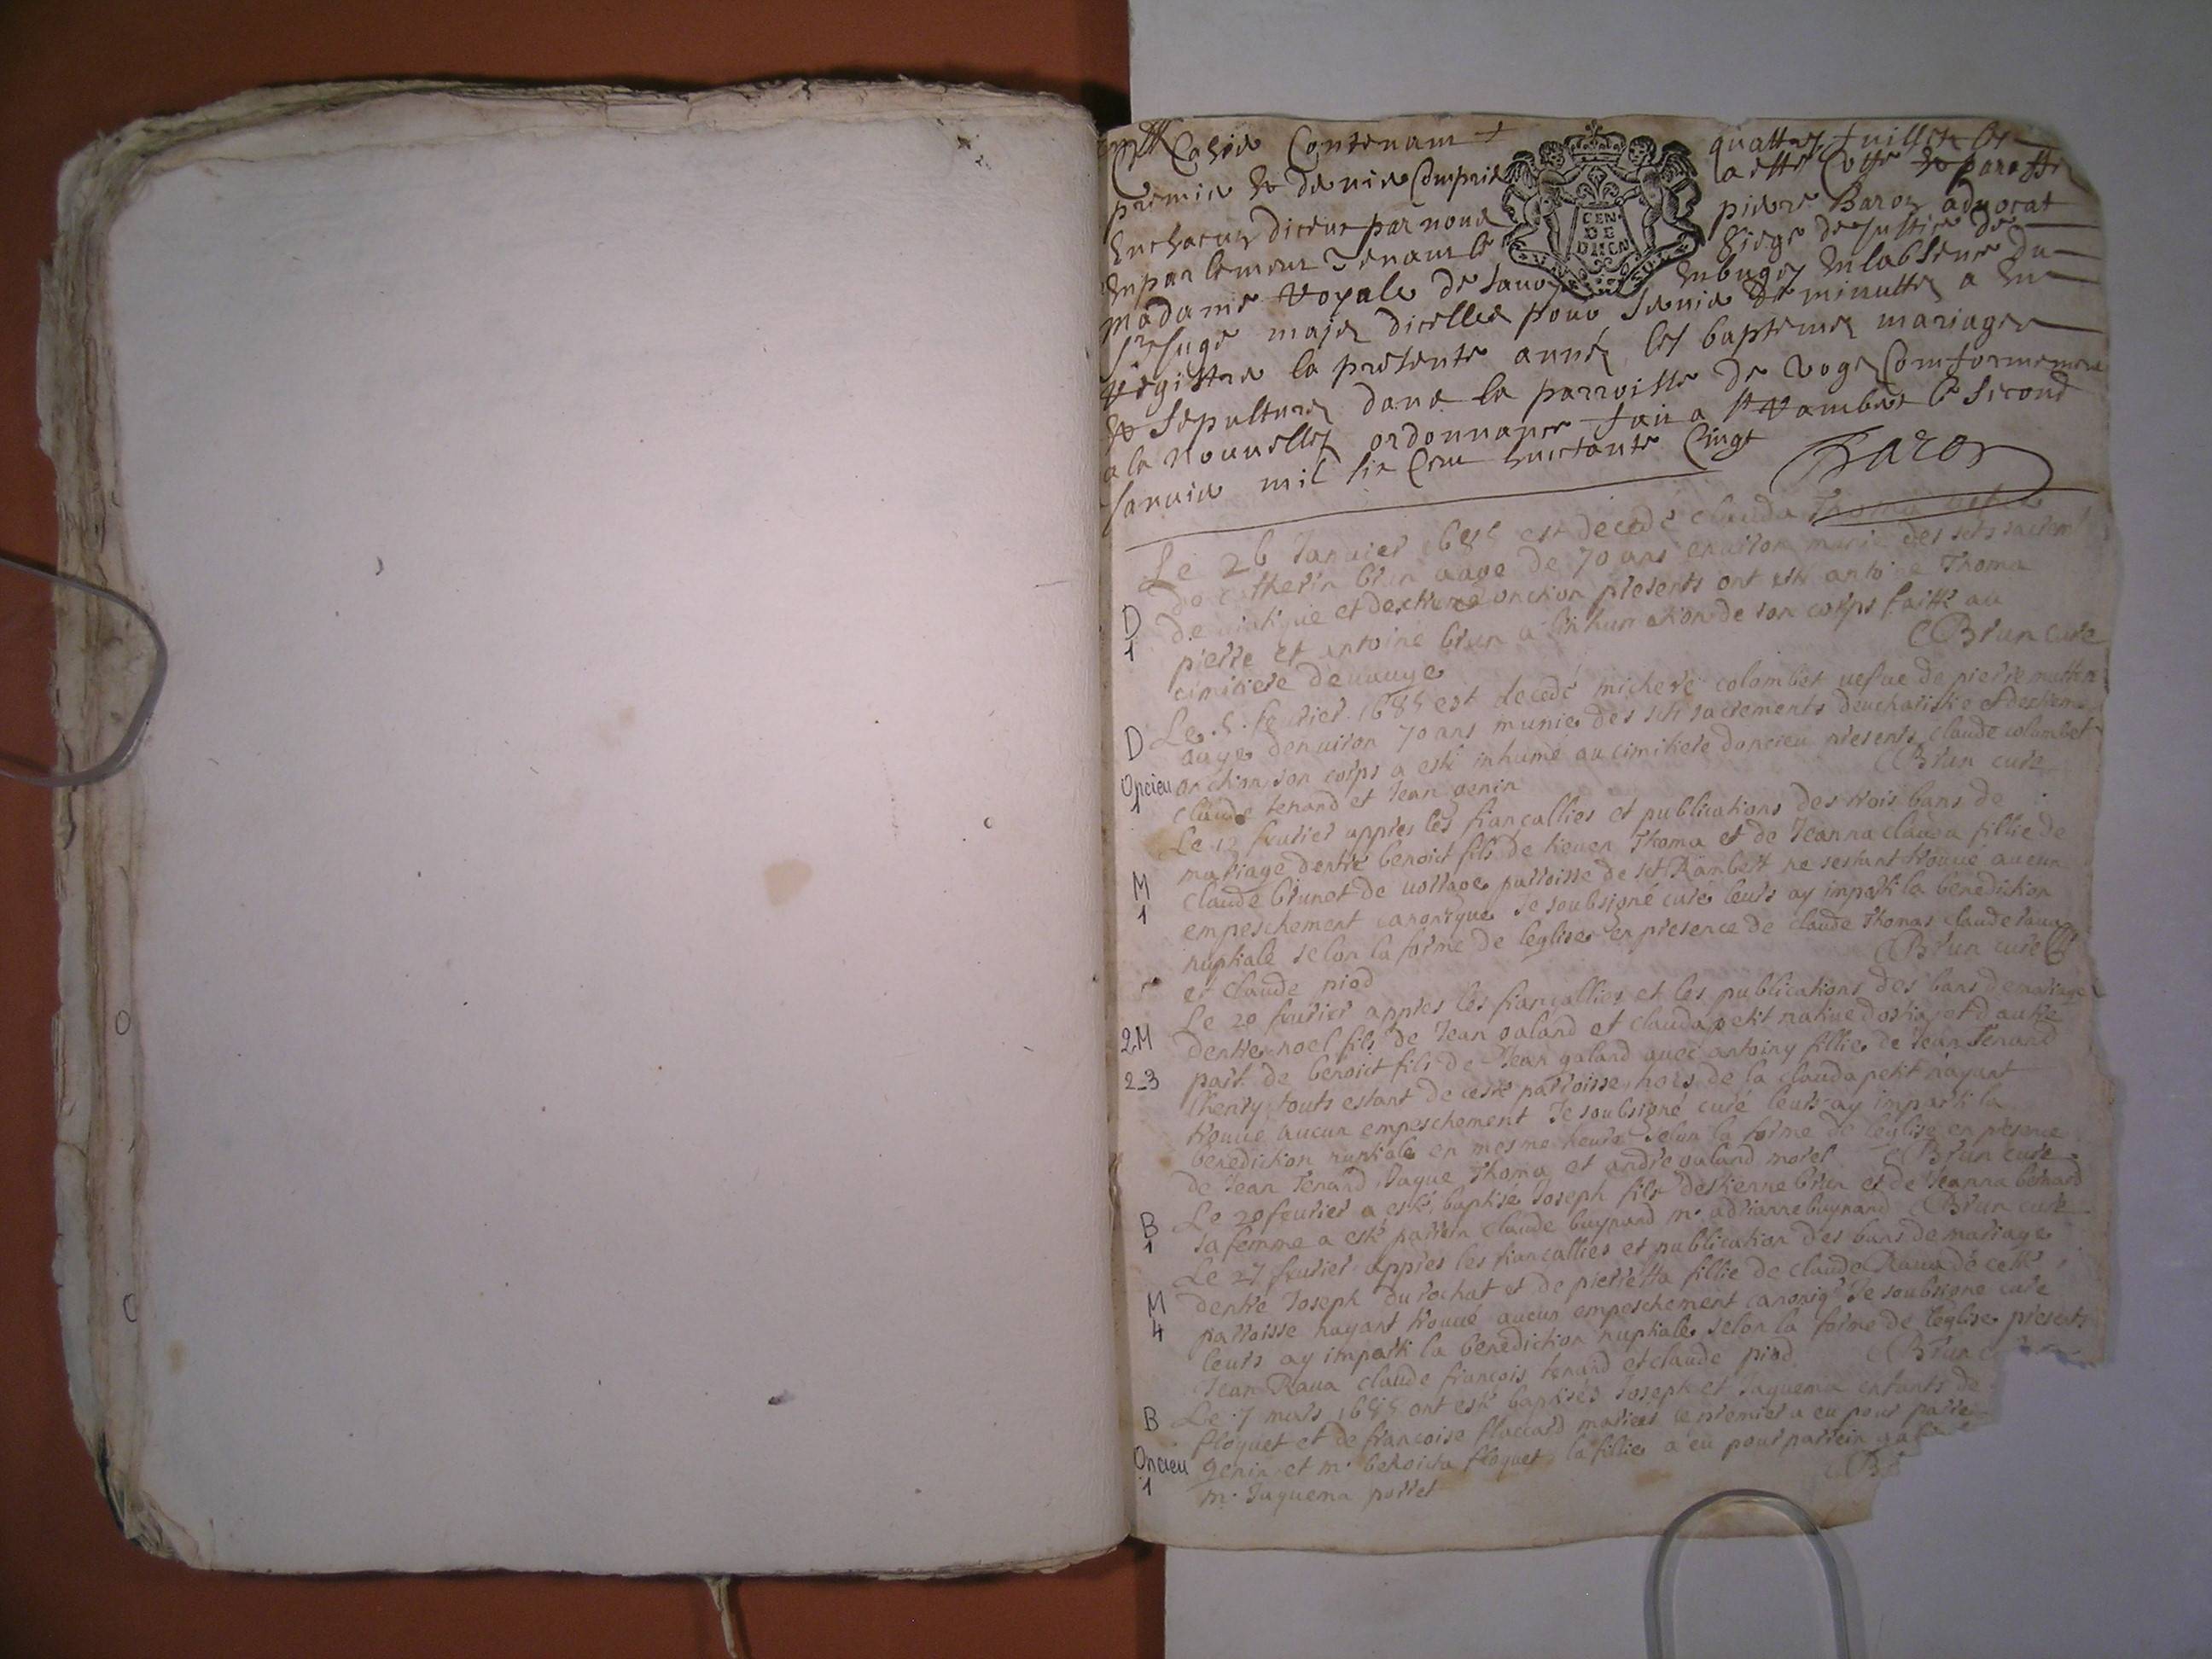 Cahier Contenant quattres fuillets les
premier & dernier Compris a esté Cotté & paraffé
en chacun diceux par nous pierre Baron advocat
en parlement tenant le siege de Justice de
CEN.
DE
DIICN
madame Royale de Savoye en bugey en labsence du
Sr Juge maje dicelles pour servir de minutte a en
registrer la presente année les baptemes mariages
& Sepultures dans la parroisse de voge Comformement
a la nouvelles ordonnance fait a St Rambert le second
Janvier mil six Cens huictante Cinqt
Baron
Le 26 Janvier 1685 est decedé clauda Thoma vefve
de catherin brun aage de 70 ans environ munie des scts sacremts
de viatique et dextreme onction presents ont esté antoine Thoma
pierre et antoine brun a linhumation de son corps faitte au
cimitiere de vauge
Brun curé
D
1
Le 5. fevrier 1685 est decedé micheré colombet vefve de pierre
aage denviron 70 ans munie des scts sacrements deucharistie et dextreme
onction son corps a esté inhumé au cimitiere doncieu presents claude colombet
claude tenand et Jean genin
Brun curé
D
Oncieu
1
Le 13 fevrier appres les fiancallies et publications des trois bans de
mariage dentre benoict fils de Thoma et de Jeanna clauda fillie de
claude brunet de parroisse de sct Rambert ne sestant trouvé aucun
empeschement canonique Je soubsigné curé leurs ay imparti la benediction
nuptiale selon la forme de leglise en presence de claude Thomas claude
et claude piod
Brun curé
M
1
Le 20 fevrier appres les fiancallies et les publications des bans de mariage
dentre noel fils de Jean galand et clauda petit native et dautre
part de benoict fils de Jean galand avec antoiny fillie de Jean Tenand
touts estant de ceste parroisse hors de la clauda petit nayant
trouvé aucun empeschement Je soubsigné curé leurs ay imparti la
benediction nuptiale en mesme heure selon la forme de leglise en presence
de Jean Tenand Jaque Thoma et andre galand morel
Brun curé
2M
2_3
Le 20 fevrier a esté baptisé Joseph fils destienne brun et de Jeanna benand
sa femme a esté parrein claude buynand m. adrianne buynand Brun curé
B
1
Le 27 fevrier appres les fiancallies et publication des bans de mariage
dentre Joseph du rochat et de pierretta fillie de claude Rava de cette
parroisse nayant trouvé aucun empeschement canoniq Je soubsigné curé
leurs ay imparti la benediction nuptiale selon la forme de leglise presents
Jean Rava claude francois tenand et claude piod
Brun
M
4
Le 7 mars 1685 ont esté baptisés Joseph et Jaquema enfants de
floquet et de francoise flaccard mariés le premier a eu pour parrein
genin et m. benoicta floquet la fillie a eu pour parrein
m. Jaquema porret
B
Oncieu
1